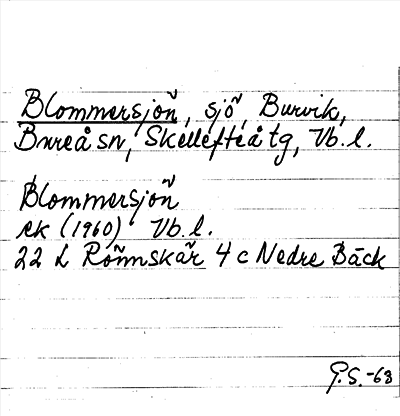 Blommersjön, sjö, Burvik,
Bureå sn, Skellefteå tg, Vb. l.
Blommersjön
ek (1960) Vb. l.
22 L Rönnskär 4 c Nedre Bäck
G.S. -68